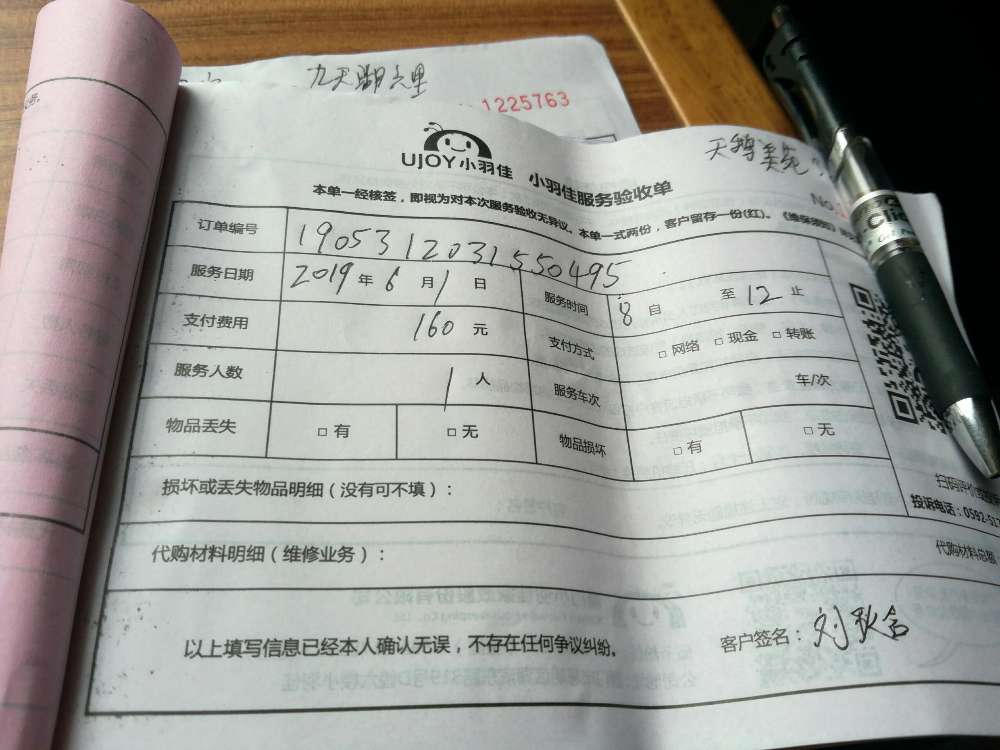 九天湖之里
1225763
天鹅美苑
UJOY小羽佳 小羽佳服务验收单
No.
本单一经核签，即视为对本次服务验收无异议。本单一式两份，客户留存一份(红)。
订单编号 19053120315550495
服务日期 2019年6月1日 服务时间 8自 至12止
支付费用 160元 支付方式 □网络 □现金 □转账
服务人数 1人 服务车次 车/次
物品丢失 □有 □无 物品损坏 □有 □无
扫码评价
投诉电话：0592-52
损坏或丢失物品明细（没有可不填）：
代购材料明细（维修业务）： 代购材料总额
以上填写信息已经本人确认无误，不存在任何争议纠纷。 客户签名：刘秋含